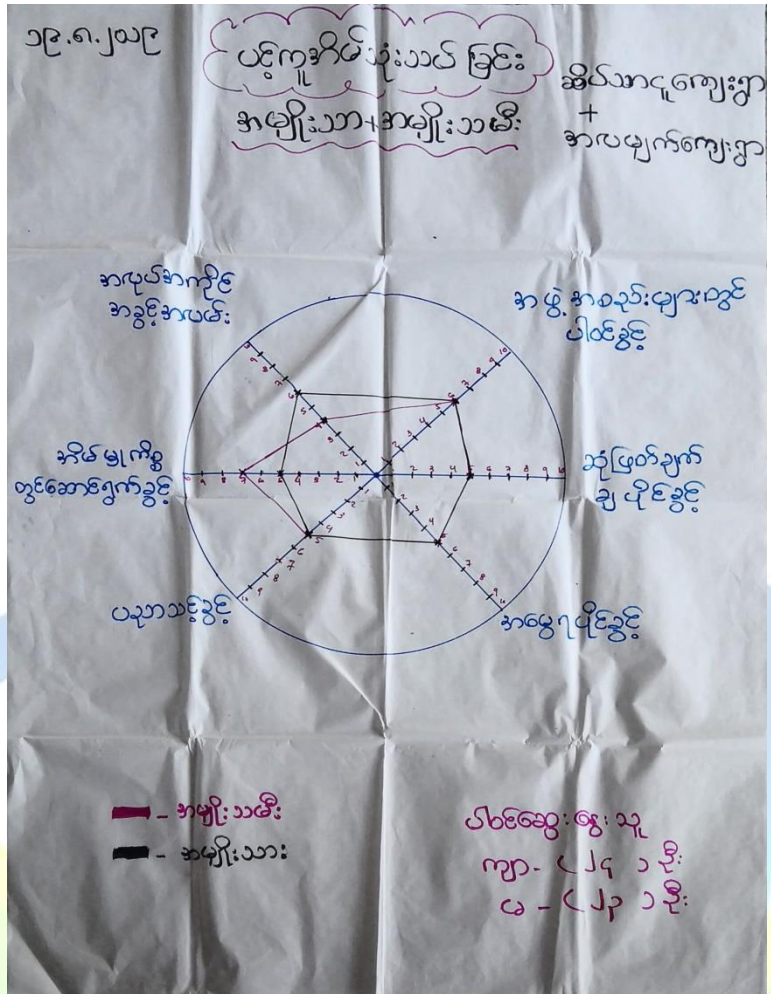 ၁၉.၈.၂၀၁၉
ပင့်ကူအိမ်သုံးသပ်ခြင်း
အမျိုးသား+အမျိုးသမီး
ဆိပ်သာငူကျေးရွာ
+
အလမျက်ကျေးရွာ
အလုပ်အကိုင်
အခွင့်အလမ်း
အဖွဲ့အစည်းများတွင်
ပါဝင်ခွင့်
အိမ်မှုကိစ္စ
တွင်ဆောင်ရွက်ခွင့်
ဆုံဖြတ်ချက်
ချပိုင်ခွင့်
ပညာသင့်ခွင့်
အမွေရပိုင်ခွင့်
- အမျိုးသမီး
- အမျိုးသား
ပါဝင်ဆွေးနွေးသူ
ကျာ - (၂၄) ဦး
မ - (၂၃) ဦး